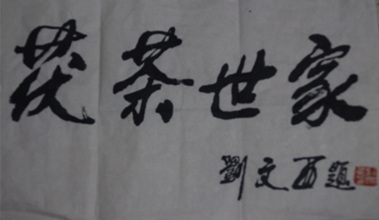 茯茶世家
劉文西題